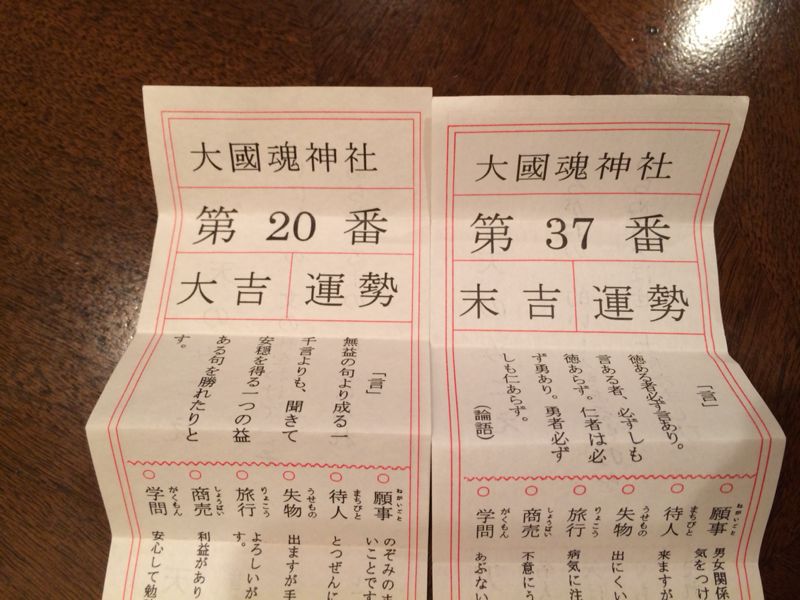 大國魂神社
第 20 番
大吉 運勢
「言」
無益の句より成る一
千言よりも、聞きて
安穏を得る一つの益
ある句を勝れたりと
す。
願事 ねがいごと のぞみのま
いことです
待人 まちびと とつぜんに
失物 うせもの 出ますが手
旅行 りょこう よろしいが
す。
商売 しょうばい 利益があり
学問 がくもん 安心して勉
大國魂神社
第 37 番
末吉 運勢
「言」
徳ある者必ず言あり。
言ある者、必ずしも
徳あらず。仁者は必
ず勇あり。勇者必ず
しも仁あらず。
(論語)
願事 ねがいごと 男女関係
気をつけ
待人 まちびと 来ますが
失物 うせもの 出にくい
旅行 りょこう 病気に注
商売 しょうばい 不意にう
学問 がくもん あぶない